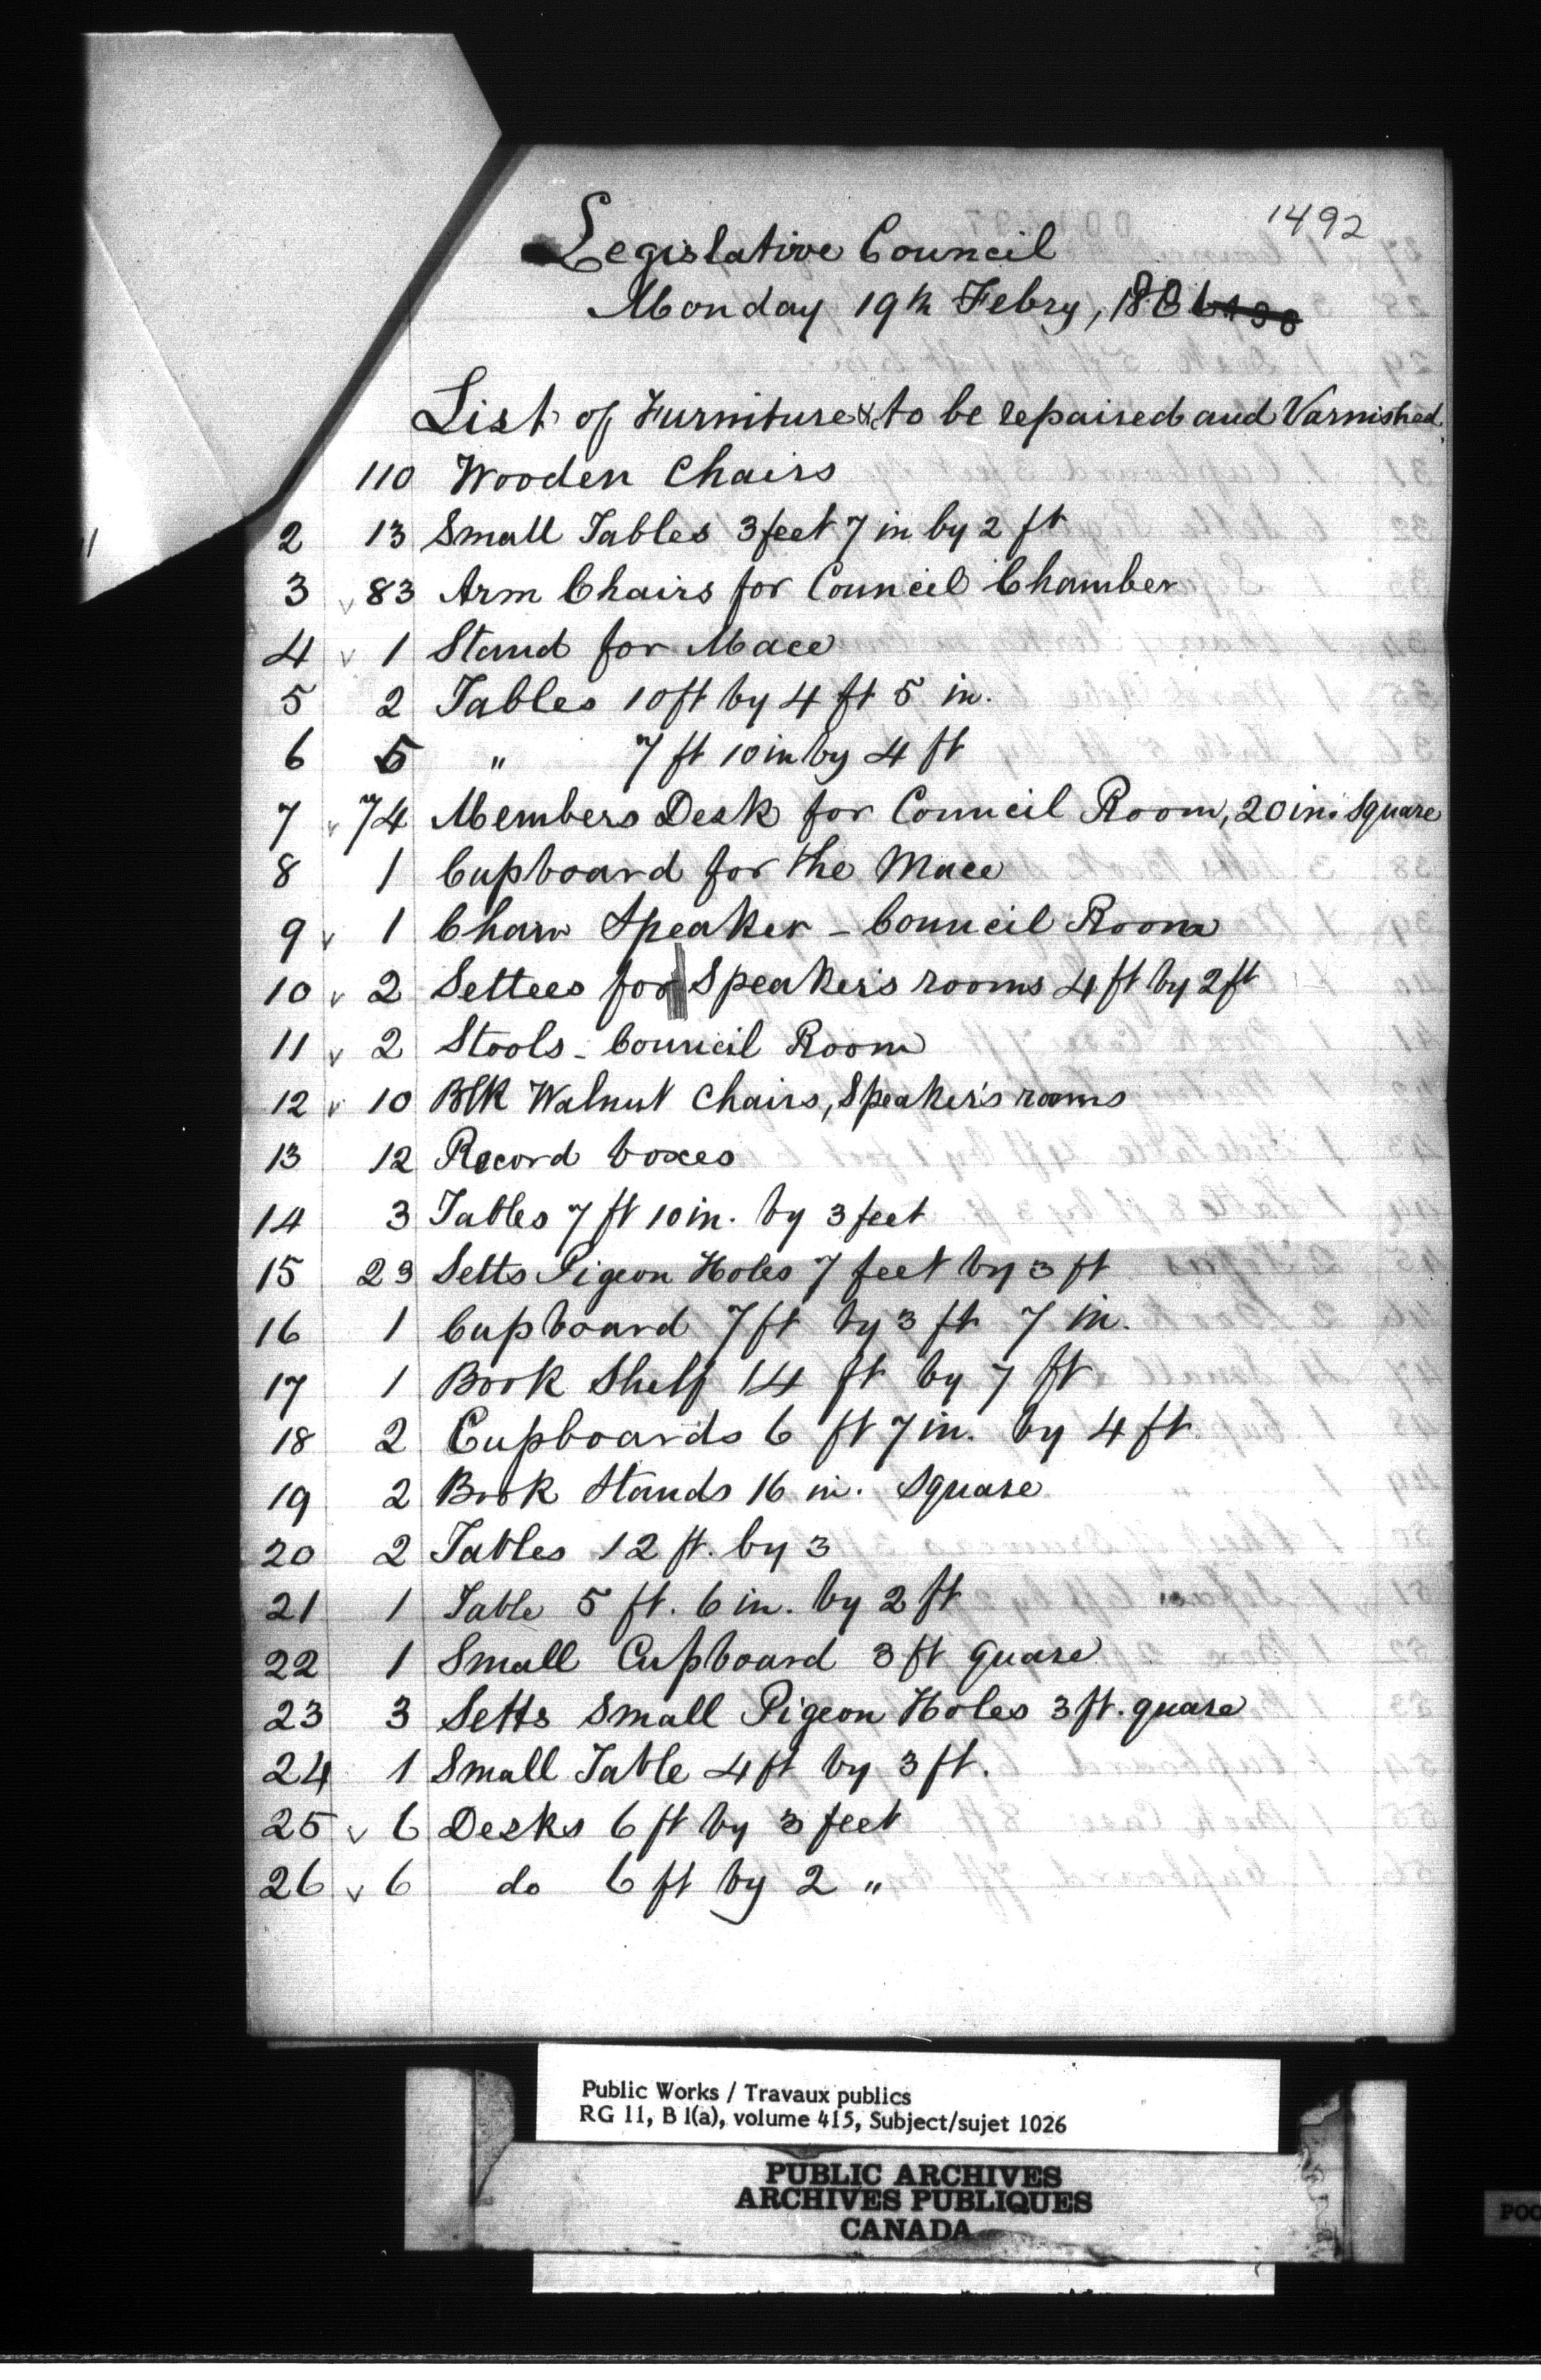 1492
Legislative Council
Monday 19th Febry, 1866
List of Furniture &c to be repaired and Varnished.
110 Wooden Chairs
2 13 Small Tables 3 feet 7 in by 2 ft
3 v 83 Arm Chairs for Council Chamber
4 v 1 Stand for Mace
5 2 Tables 10 ft by 4 ft 5 in.
6 5 " 7 ft 10 in by 4 ft
7 v 74 Members Desk for Council Room, 20 in. Square
8 1 Cupboard for the Mace
9 v 1 Chair Speaker - Council Room
10 v 2 Settees for Speaker's rooms 4 ft by 2 ft
11 v 2 Stools - Council Room
12 v 10 Blk Walnut Chairs, Speaker's rooms
13 12 Record boxes
14 3 Tables 7 ft 10 in. by 3 feet
15 23 Setts Pigeon Holes 7 feet by 3 ft
16 1 Cupboard 7 ft by 3 ft 7 in.
17 1 Book Shelf 14 ft by 7 ft
18 2 Cupboards 6 ft 7 in. by 4 ft
19 2 Book Stands 16 in. Square
20 2 Tables 12 ft. by 3
21 1 Table 5 ft. 6 in. by 2 ft
22 1 Small Cupboard 3 ft quare
23 3 Setts Small Pigeon Holes 3 ft. quare
24 1 Small Table 4 ft by 3 ft.
25 v 6 Desks 6 ft by 3 feet
26 v 6 do 6 ft by 2 "
Public Works / Travaux publics
RG 11, B 1(a), volume 415, Subject/sujet 1026
PUBLIC ARCHIVES
ARCHIVES PUBLIQUES
CANADA